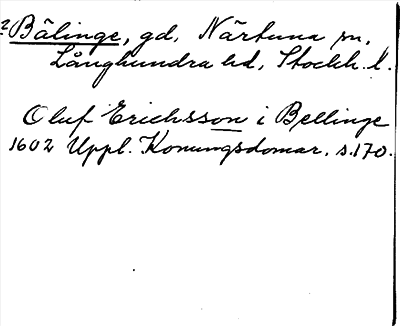 2 Bälinge, gd, Närtuna sn,
Långhundra hd, Stockh. l.
Oluf Erichsson i Bellinge
1602 Uppl. Konungsdomar, s.170.